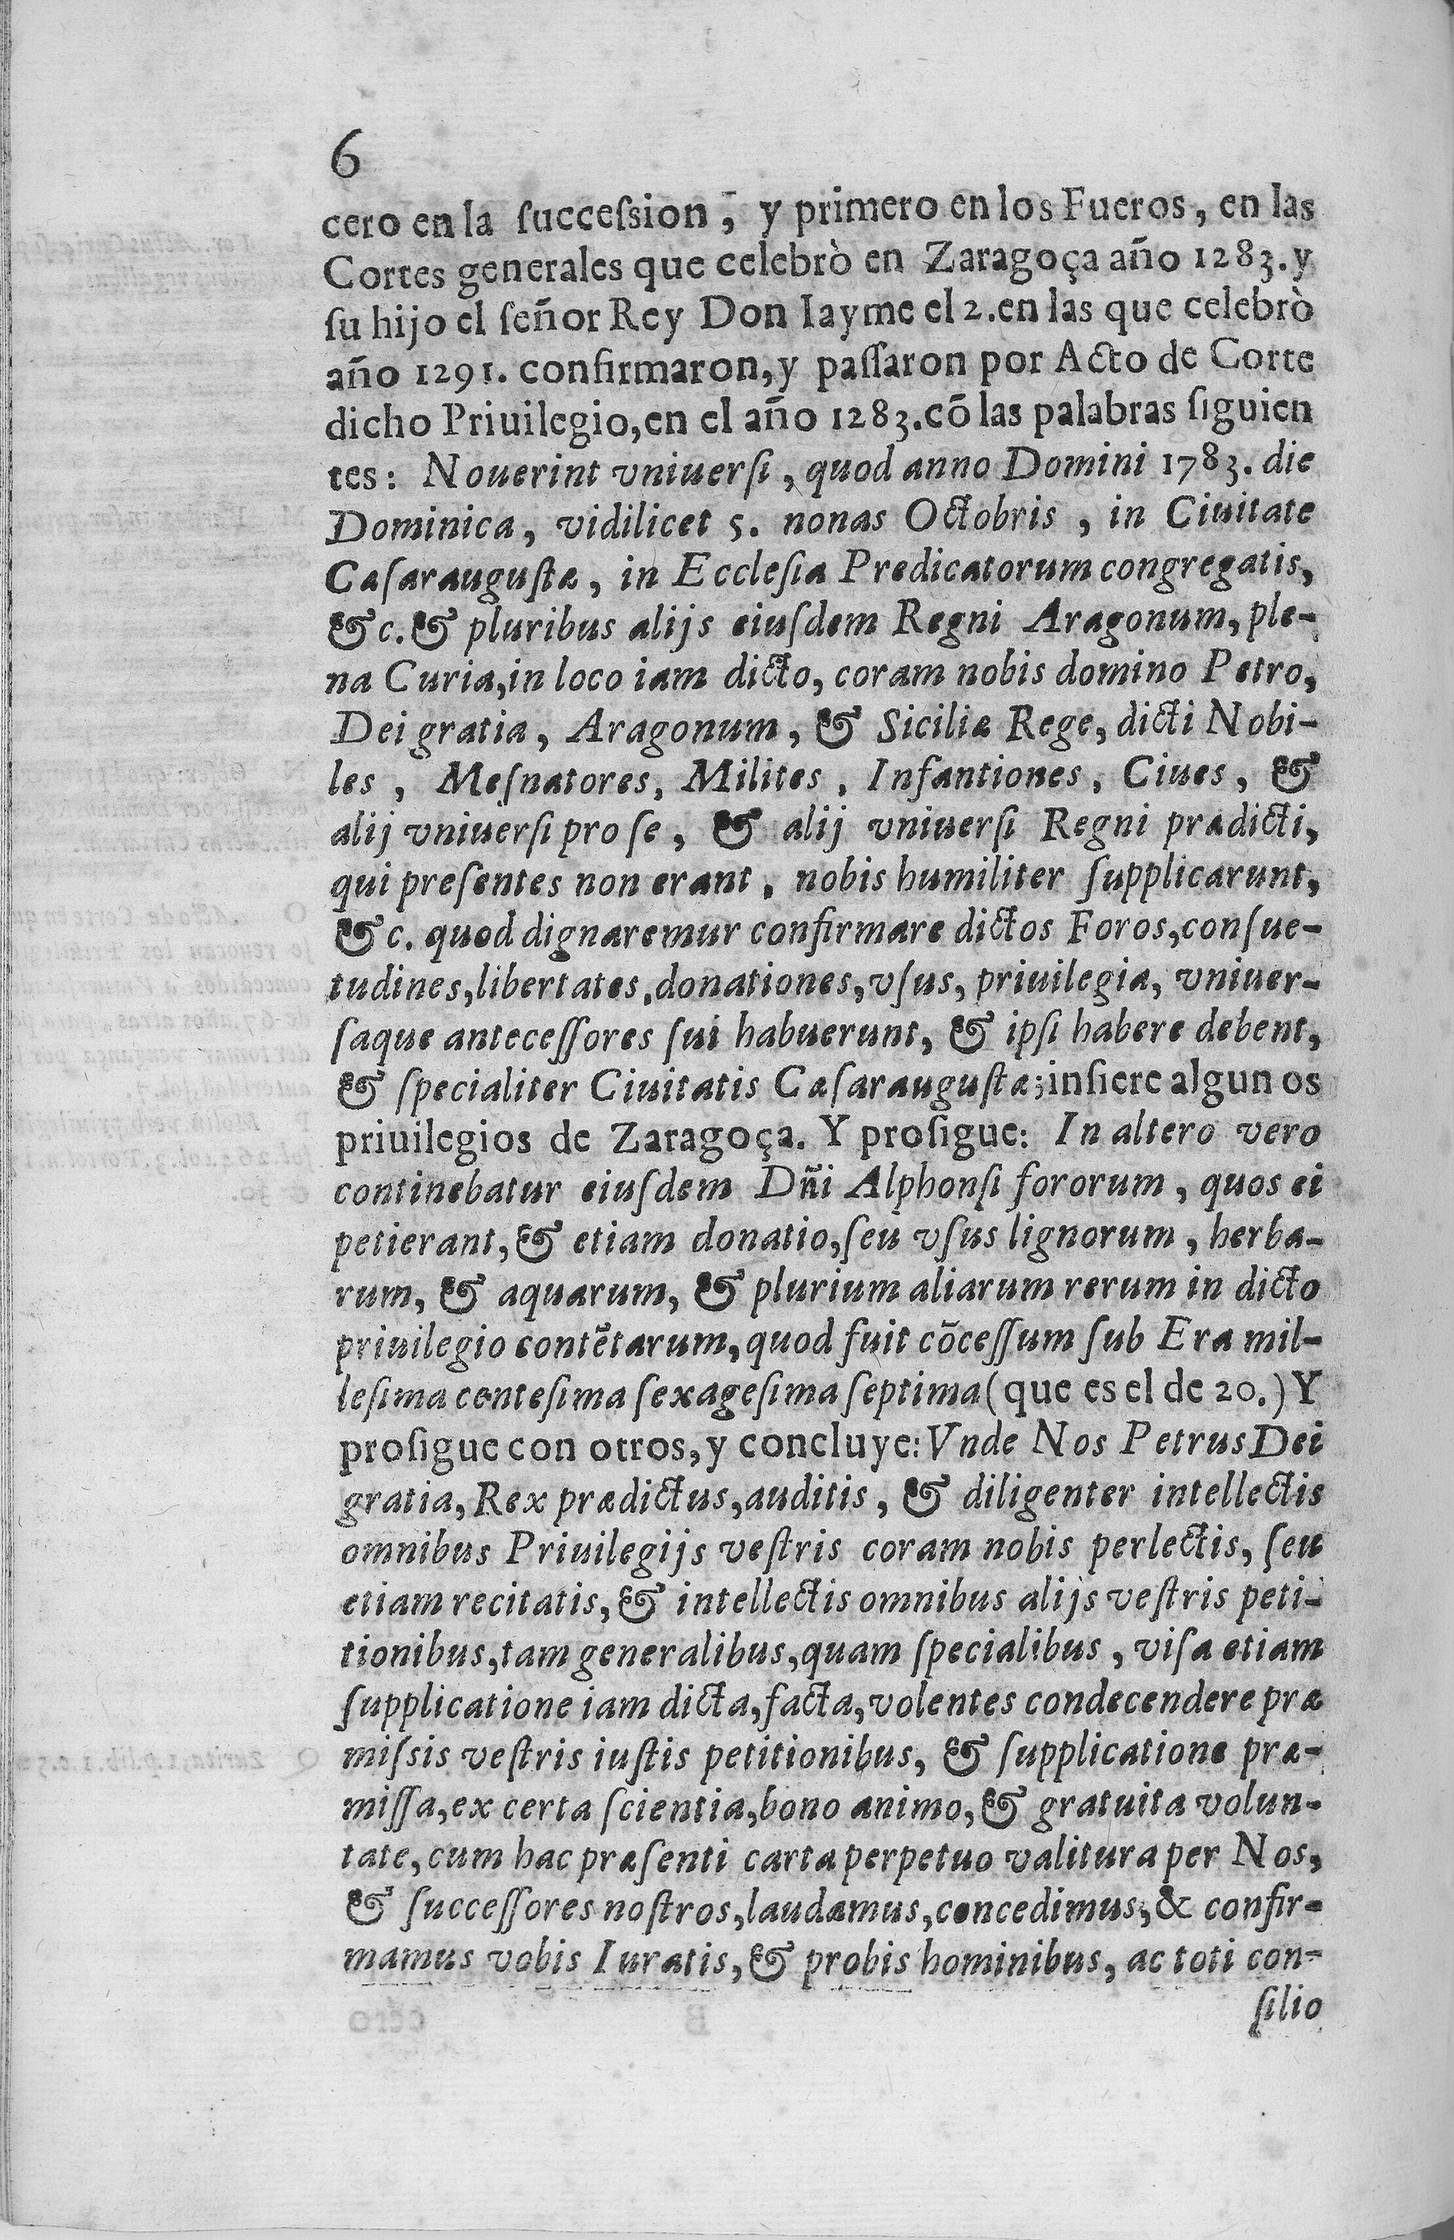 6
cero en la ſucceſsion, y primero en los Fueros, en las
Cortes generales que celebrò en Zaragoça año 1283. y
ſu hijo el ſeñor Rey Don Iayme el 2. en las que celebrò
año 1291. confirmaron, y paſſaron por Acto de Corte
dicho Priuilegio, en el año 1283. cõ las palabras ſiguien
tes: Nouerint vniuerſi, quod anno Domini 1783. die
Dominica, vidilicet 5. nonas Octobris, in Ciuitate
Cæſarauguſtæ, in Eccleſia Predicatorum congregatis,
&c. & pluribus alijs eiuſdem Regni Aragonum, ple-
na Curia, in loco iam dicto, coram nobis domino Petro,
Dei gratia, Aragonum, & Siciliæ Rege, dicti Nobi-
les, Meſnatores, Milites, Infantiones, Ciues, &
alij vniuerſi pro ſe, & alij vniuerſi Regni prædicti,
qui preſentes non erant, nobis humiliter ſupplicarunt,
&c. quod dignaremur confirmare dictos Foros, conſue-
tudines, libertates, donationes, vſus, priuilegia, vniuer-
ſaque anteceſſores ſui habuerunt, & ipſi habere debent,
& ſpecialiter Ciuitatis Cæſarauguſtæ; inſiere algunos
priuilegios de Zaragoça. Y proſigue: In altero vero
continebatur eiuſdem Dñi Alphonſi fororum, quos ei
petierant, & etiam donatio, ſeu vſus lignorum, herba-
rum, & aquarum, & plurium aliarum rerum in dicto
priuilegio contẽtarum, quod fuit cõceſſum ſub Era mil-
leſima centeſima ſexageſima ſeptima (que es el de 20.) Y
proſigue con otros, y concluye: Vnde Nos Petrus Dei
gratia, Rex prædictus, auditis, & diligenter intellectis
omnibus Priuilegijs veſtris coram nobis perlectis, ſeu
etiam recitatis, & intellectis omnibus alijs veſtris peti-
tionibus, tam generalibus, quam ſpecialibus, viſa etiam
ſupplicatione iam dicta, facta, volentes condecendere præ
miſsis veſtris iuſtis petitionibus, & ſupplicatione præ-
miſſa, ex certa ſcientia, bono animo, & gratuita volun-
tate, cum hac præſenti carta perpetuo valitura per Nos,
& ſucceſſores noſtros, laudamus, concedimus, & confir-
mamus vobis Iuratis, & probis hominibus, ac toti con-
ſilio